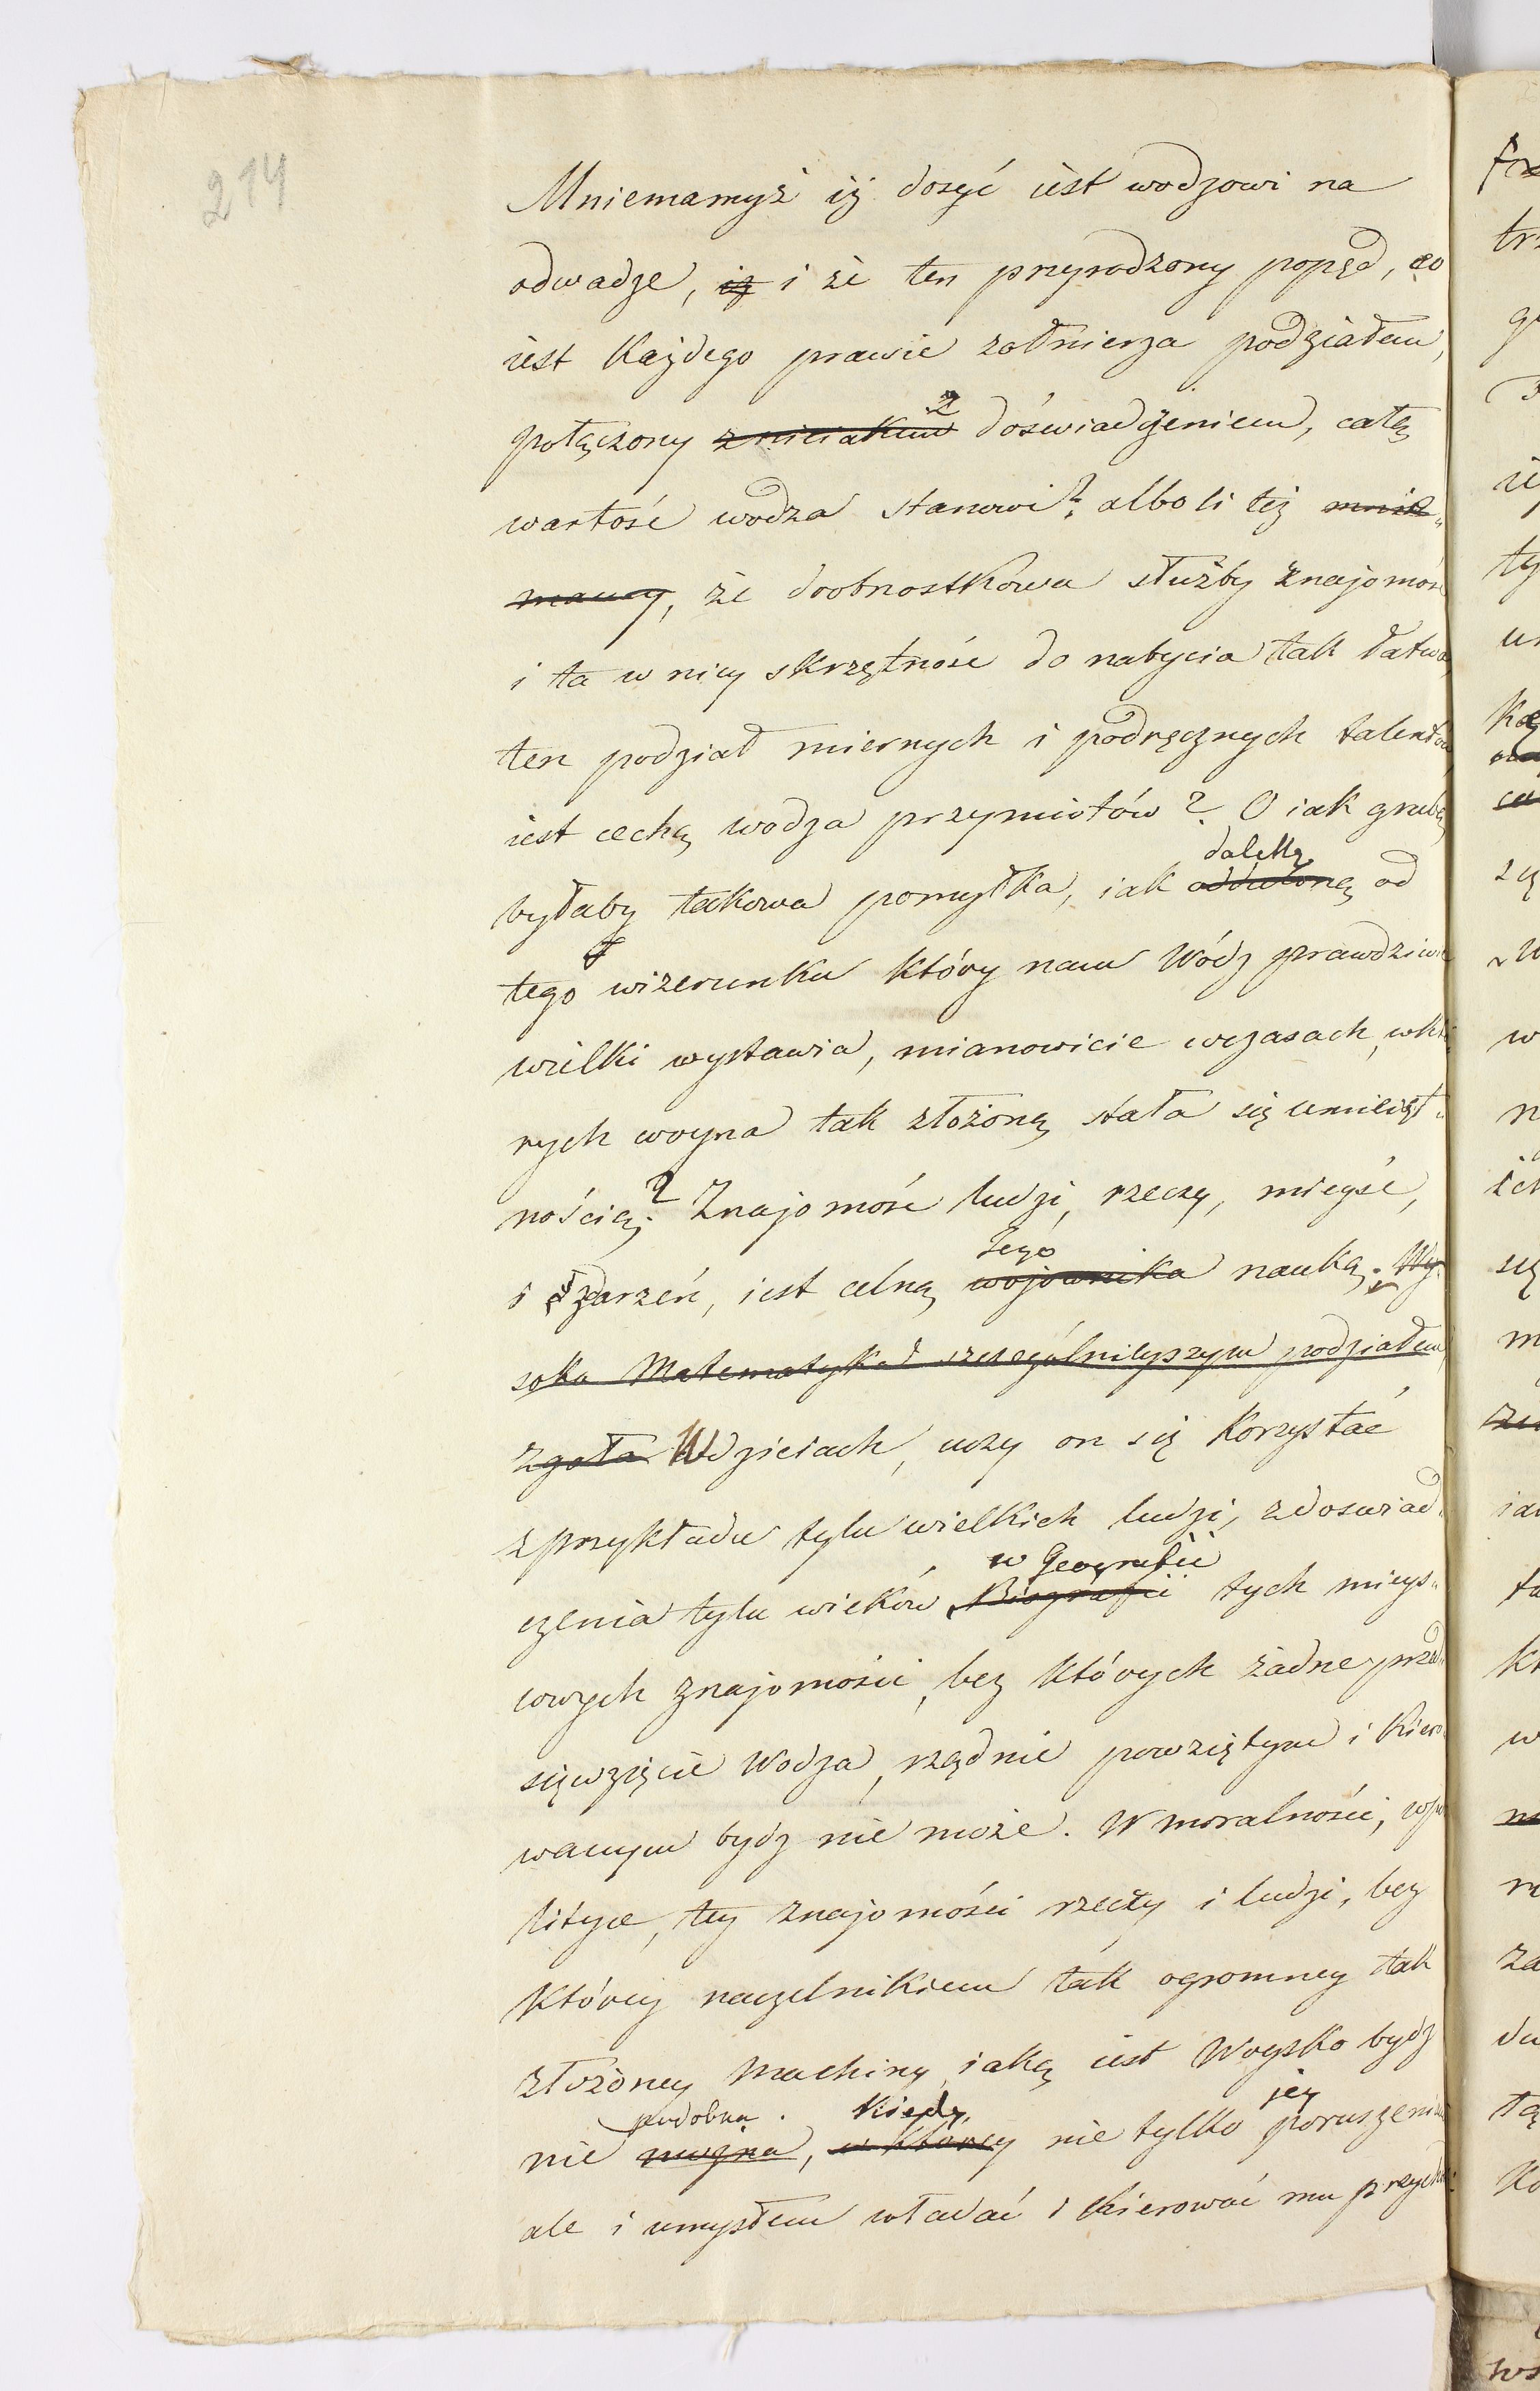 214
Mniemamyż iż dosyć iest wodzowi na
odwadze, iż i że ten przyrodzony popęd, co
iest każdego prawie żołnierza podziałem,
połączony z nieiakim z doświadczeniem, całą
wartość wodza stanowi? albo li też mnie„
mamy, że drobnostkowa służby znajomość
i ta w niey skrzętność do nabycia tak łatwa,
ten podział miernych i podręcznych talentów
iest cechą wodza przymiotów? O iak grubą
daleką
byłaby takowa pomyłka, iak oddaloną od
tego wizerunku który nam Wódz prawdziwie
wielki wystawia, mianowicie wczasach, wktó
rych woyna tak złożoną stała się umieięt„
nością? Znajomość ludzi, rzeczy, mieysc,
Jego
i zdarzeń, iest celną wojownika nauką. Wy„
soka Matematyka szczególnieyszym podziałem
zgoła W dzieiach, uczy on się korzystać
z przykładu tylu wielkich ludzi, z doswiad„
w Geografii
czenia tylu wieków, Biografii tych mieys„
cowych znajomości, bez których żadne przed„
sięwzięcie Wodza, rządnie powziętym i kiero
wanym bydz nie może. W moralności, wpo
lityce, tey znajomości rzeczy i ludzi, bez
którey naczelnikiem tak ogromney tak
złożoney Machiny, iaką iest Woysko bydz
podobna. kiedy jey
nie można, w którey nie tylko poruszeniem
ale i umysłem władać i kierować mu przycho